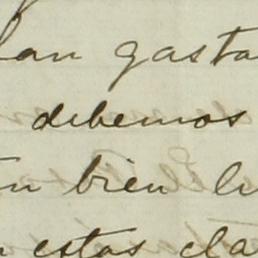 han gasta
debemos
en bien lu
n estas cla